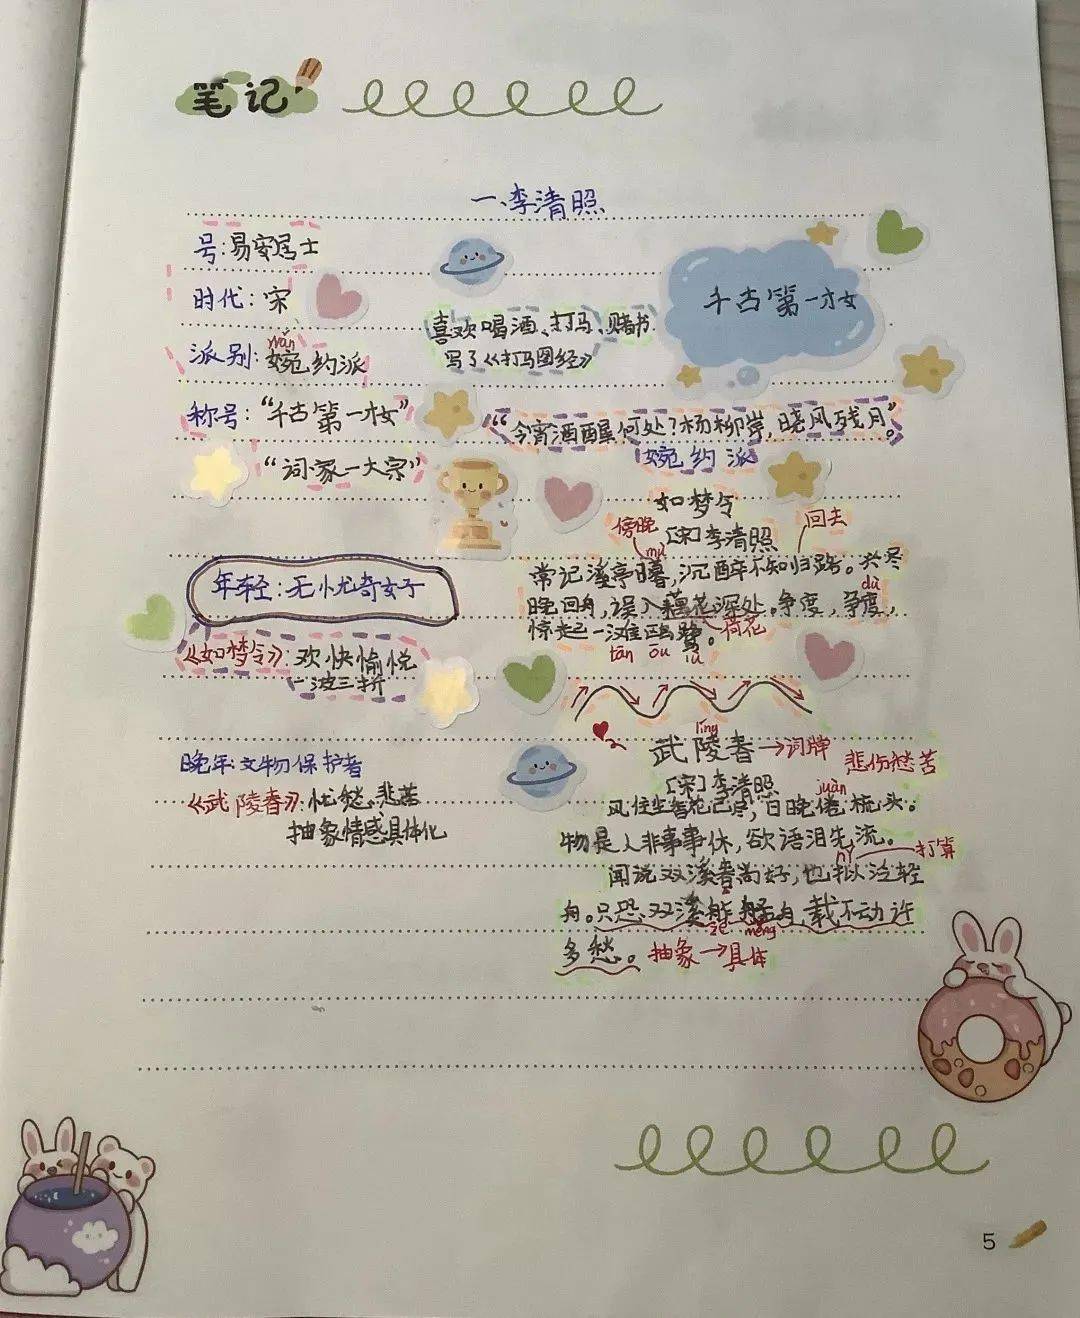 笔记
一、李清照
号：易安居士
时代：宋
yuǎn
派别：婉约派
称号：“千古第一才女”
“词家一大宗”
喜欢喝酒、打马、赌书
写了《打马图经》
千古第一才女
“今宵酒醒何处？杨柳岸，晓风残月。”
婉约派
如梦令
[宋]李清照
傍晚
回去
mù
常记溪亭日暮，沉醉不知归路。兴尽
dù
晚回舟，误入藕花深处。争度，争度，
荷花
惊起一滩鸥鹭。
tān ōu lù
年轻：无忧奇女子
《如梦令》：欢快愉悦
一波三折
líng
武陵春→词牌
悲伤愁苦
[宋]李清照
juàn
风住尘香花已尽，日晚倦梳头。
物是人非事事休，欲语泪先流。
nǐ
打算
闻说双溪春尚好，也拟泛轻
舟。只恐双溪舴艋舟，载不动许
zé měng
多愁。抽象→具体
晚年：文物保护者
《武陵春》：忧愁、悲苦
抽象情感具体化
5